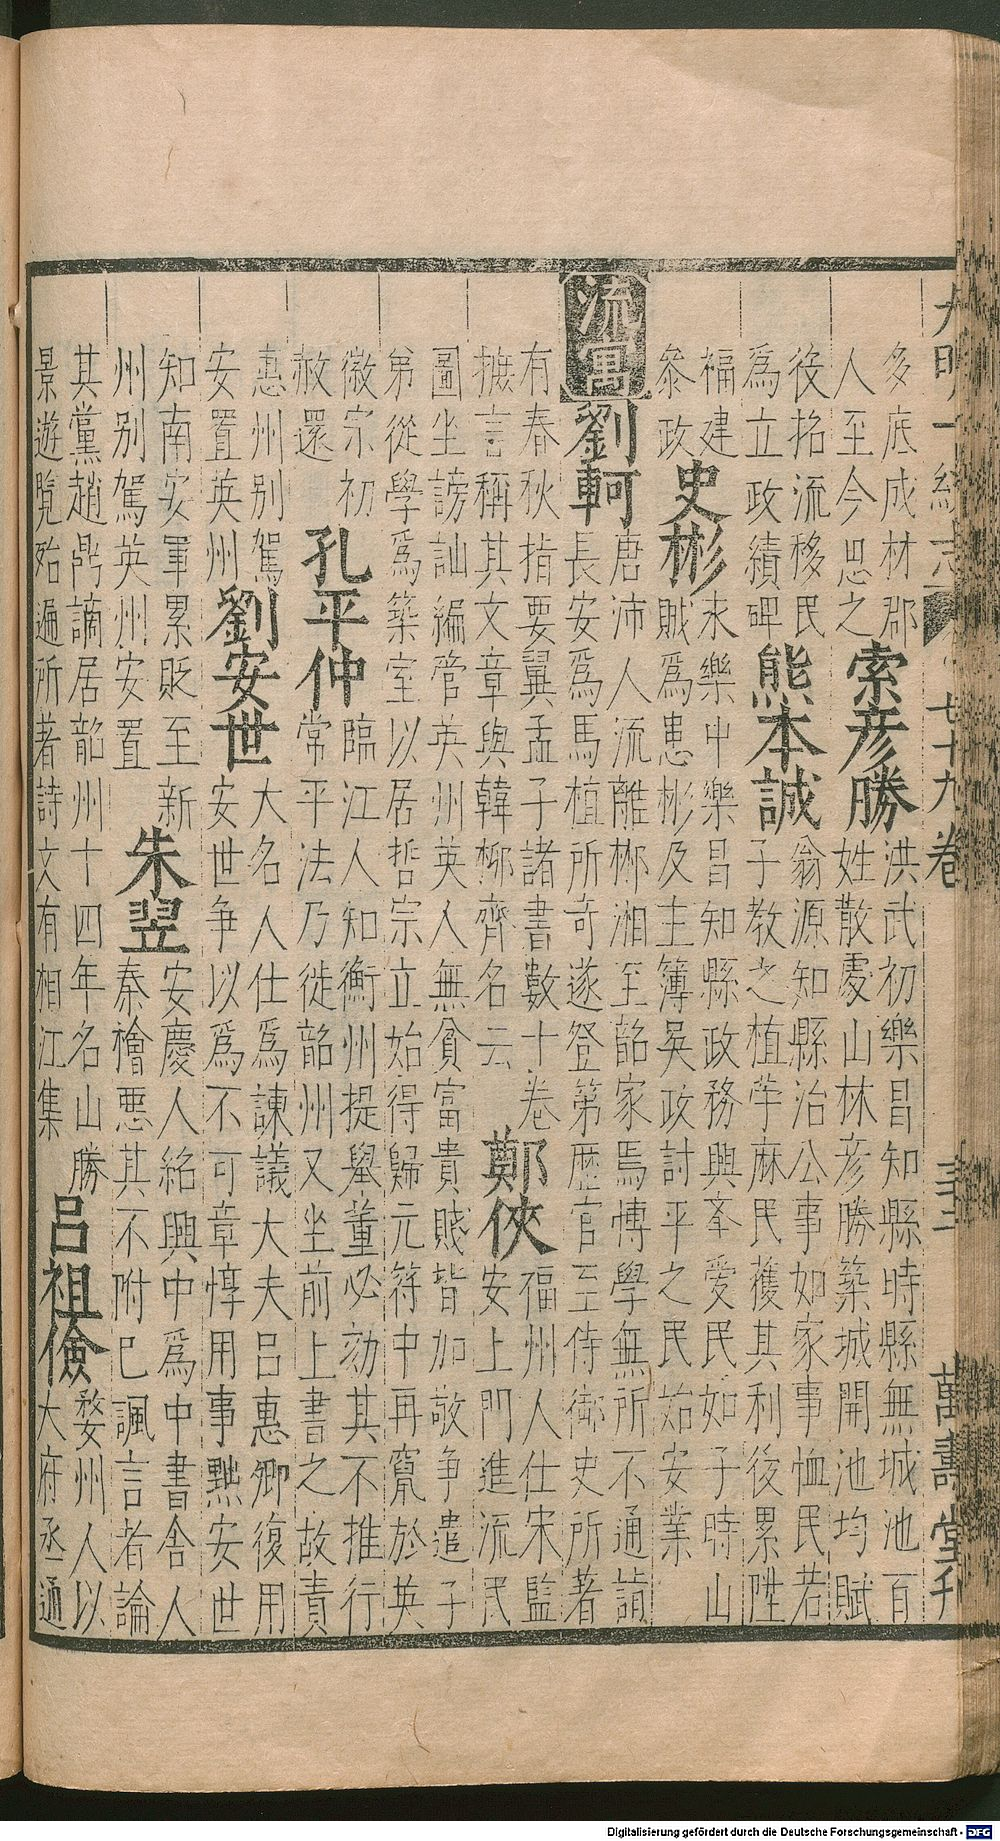 大明一統志 七十九卷 萬壽堂刊
多底成材郡
人至今思之
索彥勝
洪武初樂昌知縣時縣無城池百
姓散處山林彥勝築城開池均賦
役招流移民
爲立政績碑
熊本誠
翁源知縣治公事如家事恤民若
子教之植苧麻民獲其利後累陞
福建
叅政
史彬
永樂中樂昌知縣政務興举愛民如子時山
賊爲患彬及主簿吳政討平之民始安業
流寓
劉軻
唐沛人流離郴湘至韶家焉愽學無所不通詣
長安爲馬植所奇遂登第歴官至侍御史所著
有春秋指要翼孟子諸書數十卷
摭言稱其文章與韓柳齊名云
鄭俠
福州人仕宋監
安上門進流民
圖坐謗訕編管英州英人無貧富貴賤皆加敬争遣子
弟從學爲築室以居哲宗立始得歸元符中再竄於英
徽宗初
赦還
孔平仲
臨江人知衡州提舉董必劾其不推行
常平法乃徙韶州又坐前上書之故責
惠州别駕
安置英州
劉安世
大名人仕爲諫議大夫吕惠卿復用
安世争以爲不可章惇用事黜安世
知南安軍累貶至新
州别駕英州安置
朱翌
安慶人紹興中爲中書舍人
秦檜惡其不附巳諷言者論
其黨趙鼎謫居韶州十四年名山勝
景遊覽殆遍所著詩文有相江集
呂祖儉
婺州人以
大府丞通
Digitalisierung gefördert durch die Deutsche Forschungsgemeinschaft - DFG